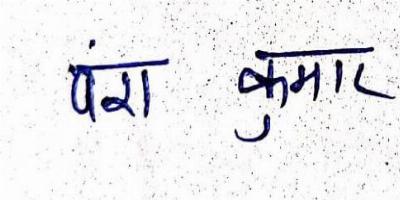 वंश कुमार